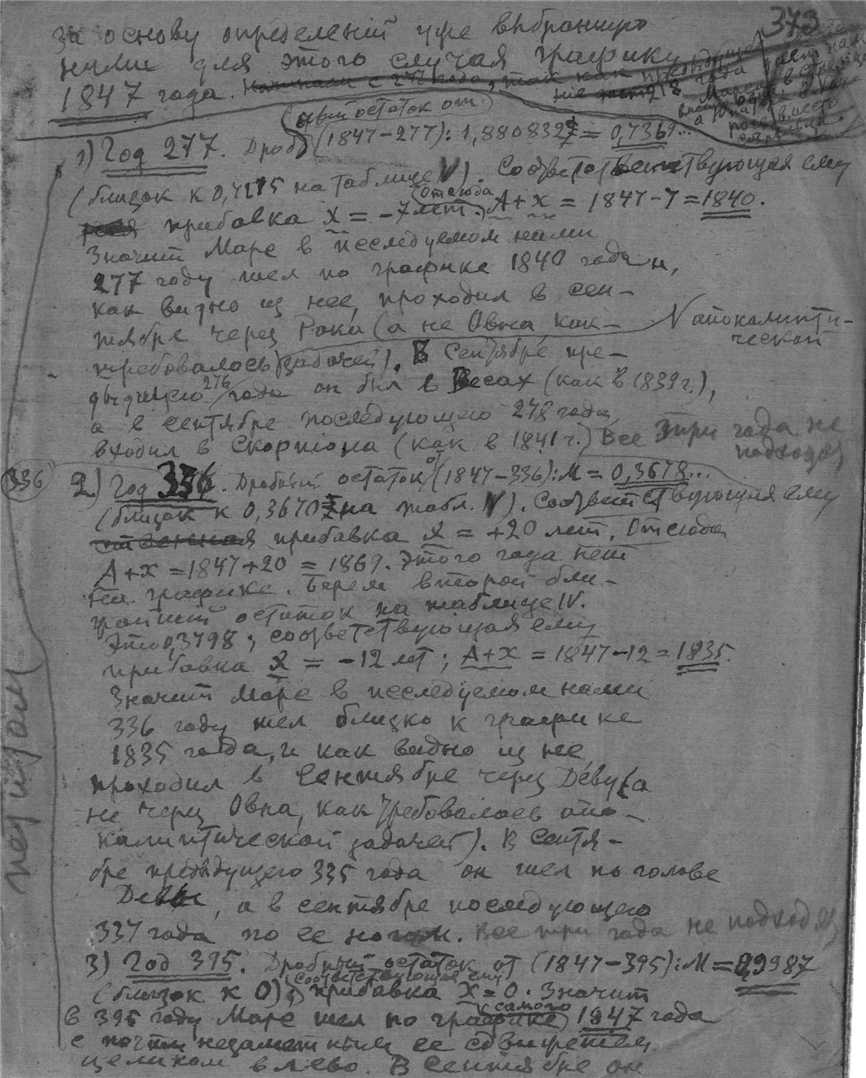 373
за основу определений уже выбранную
нами для этого случая графику
1847 года.
(ый остаток от
1) Год 277. Дроб (1847-277): 1,8808327 = 0,7369...
(близок к 0,7275 на таблице IV). Соответствующая ему
прибавка x = -7 лет. (Отсюда) A+x = 1847-7=1840.
Значит Марс в исследуемом нами
277 году шел по графике 1840 года и,
как видно из нее, проходил в сен-
тябре через Рака (а не Овна как
требовалось апокалипти-
ческой задачей). В сентябре пре-
дыдущего 276 года он был в Весах (как в 1839 г.),
а в сентябре последующего 278 года
входил в Скорпиона (как в 1841 г.) Все три года не
подходят
336
2) Год 336. Дробный остаток от (1847-336):M = 0,3678...
(близок к 0,3670 на табл. IV). Соответствующая ему
прибавка x = +20 лет. Отсюда
A+x = 1847+20 = 1867. Этого года нет
на графике. Берем второй бли-
жайший остаток на таблице IV.
Это 0,3798; соответствующая ему
прибавка x = -12 лет; A+x = 1847-12 = 1835.
Значит Марс в исследуемом нами
336 году шел близко к графике
1835 года, и как видно из нее
проходил в сентябре через Деву (а
не через Овна, как требовалось апо-
калиптической задачей). В сентя-
бре предыдущего 335 года он шел по голове
Девы, а в сентябре последующего
337 года по ее ногам. Все три года не подходят
3) Год 395. Дробный остаток от (1847-395):M = 0,9987
(близок к 0), соответствующая ему прибавка x = 0. Значит
в 395 году Марс шел по графике самого 1847 года
с почти незаметным ее сдвигом
целиком влево. В сентябре он
петитом